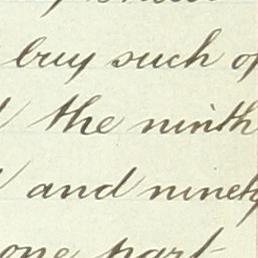 buy such of
the ninth
and ninety
one part